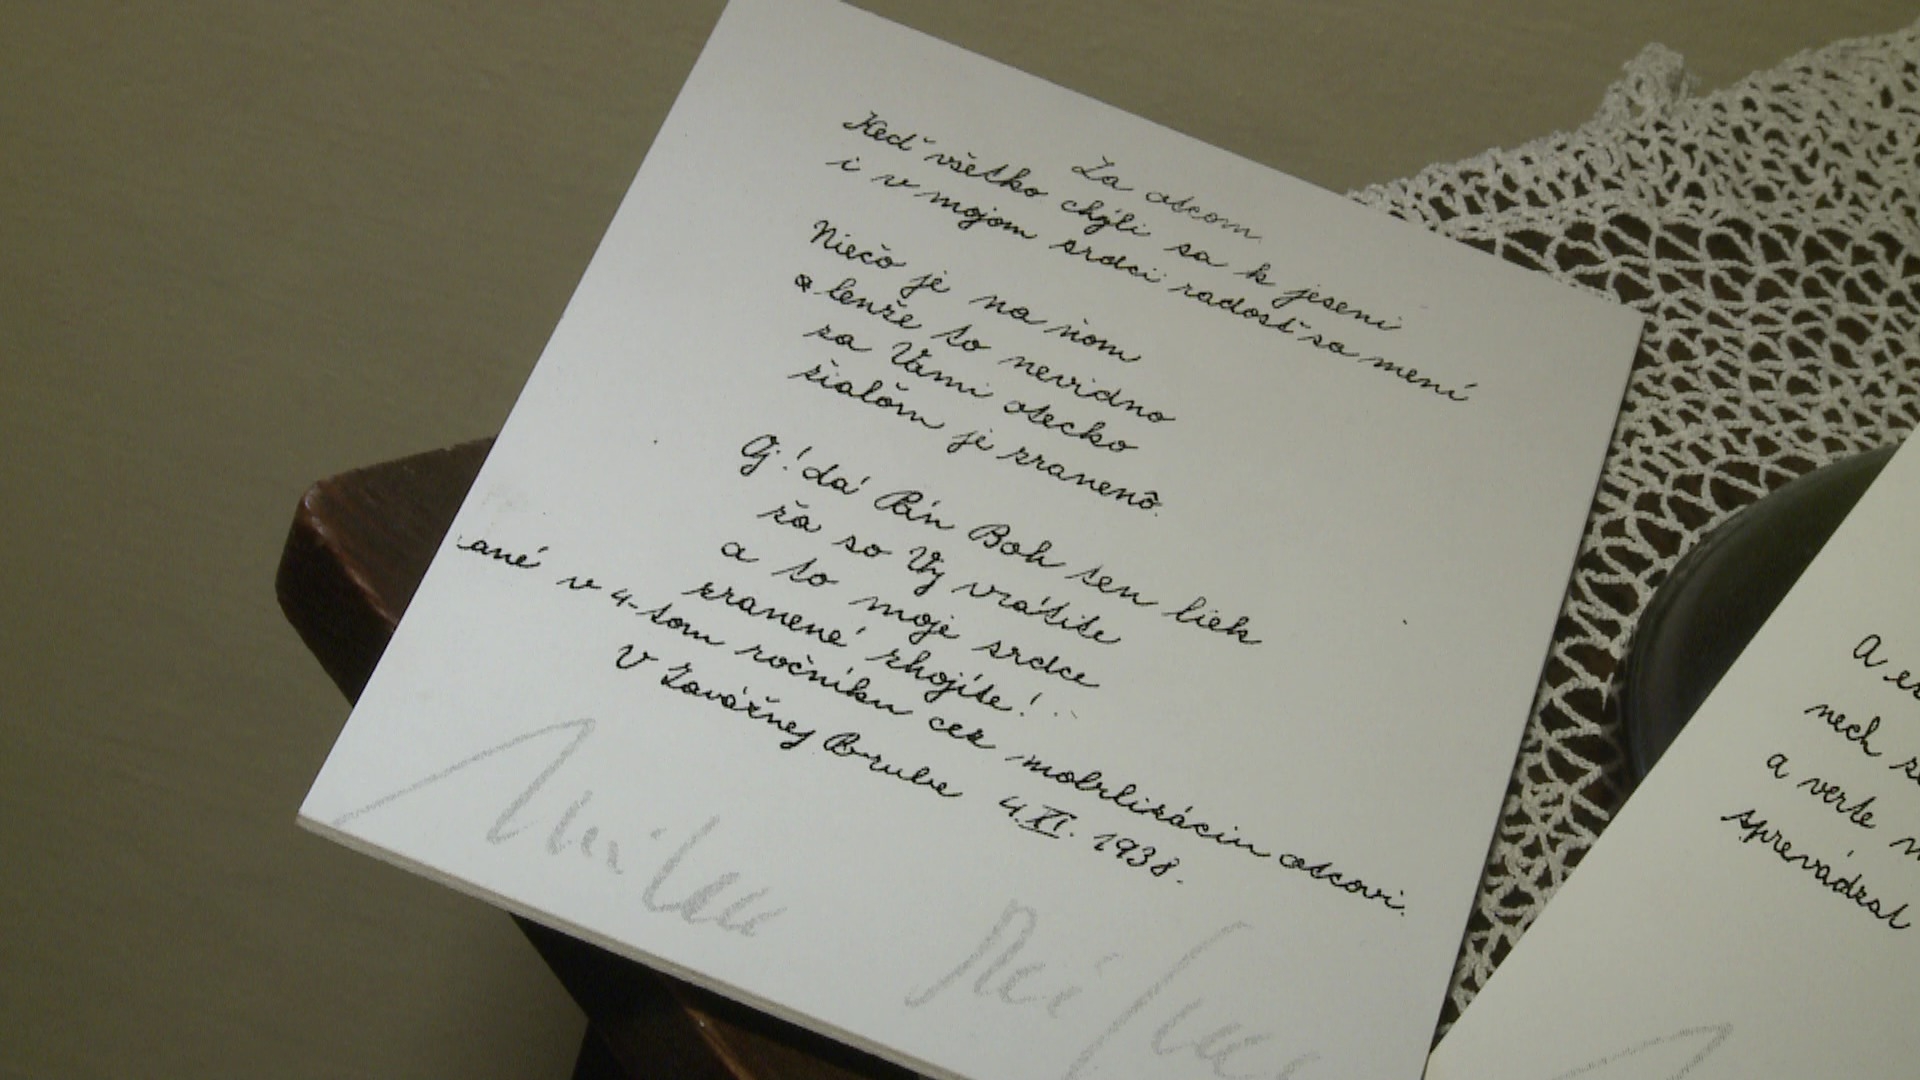 Za otcom.
Keď všetko chýli sa k jeseni
i v mojom srdci radosť sa mení
Niečo je na ňom
lenže to nevidno
za Vami otecko
žialom je zranenô.
Oj! dá Pán Boh ten liek
že so Vy vrátite
a to moje srdce
zranené zhojíte!
ané v 4-tom ročníku cez mobilizáciu otcovi.
V Závažnej Porube 4.XI. 1938.
Milan
Milan
A
nech
a verte
sprevádzať